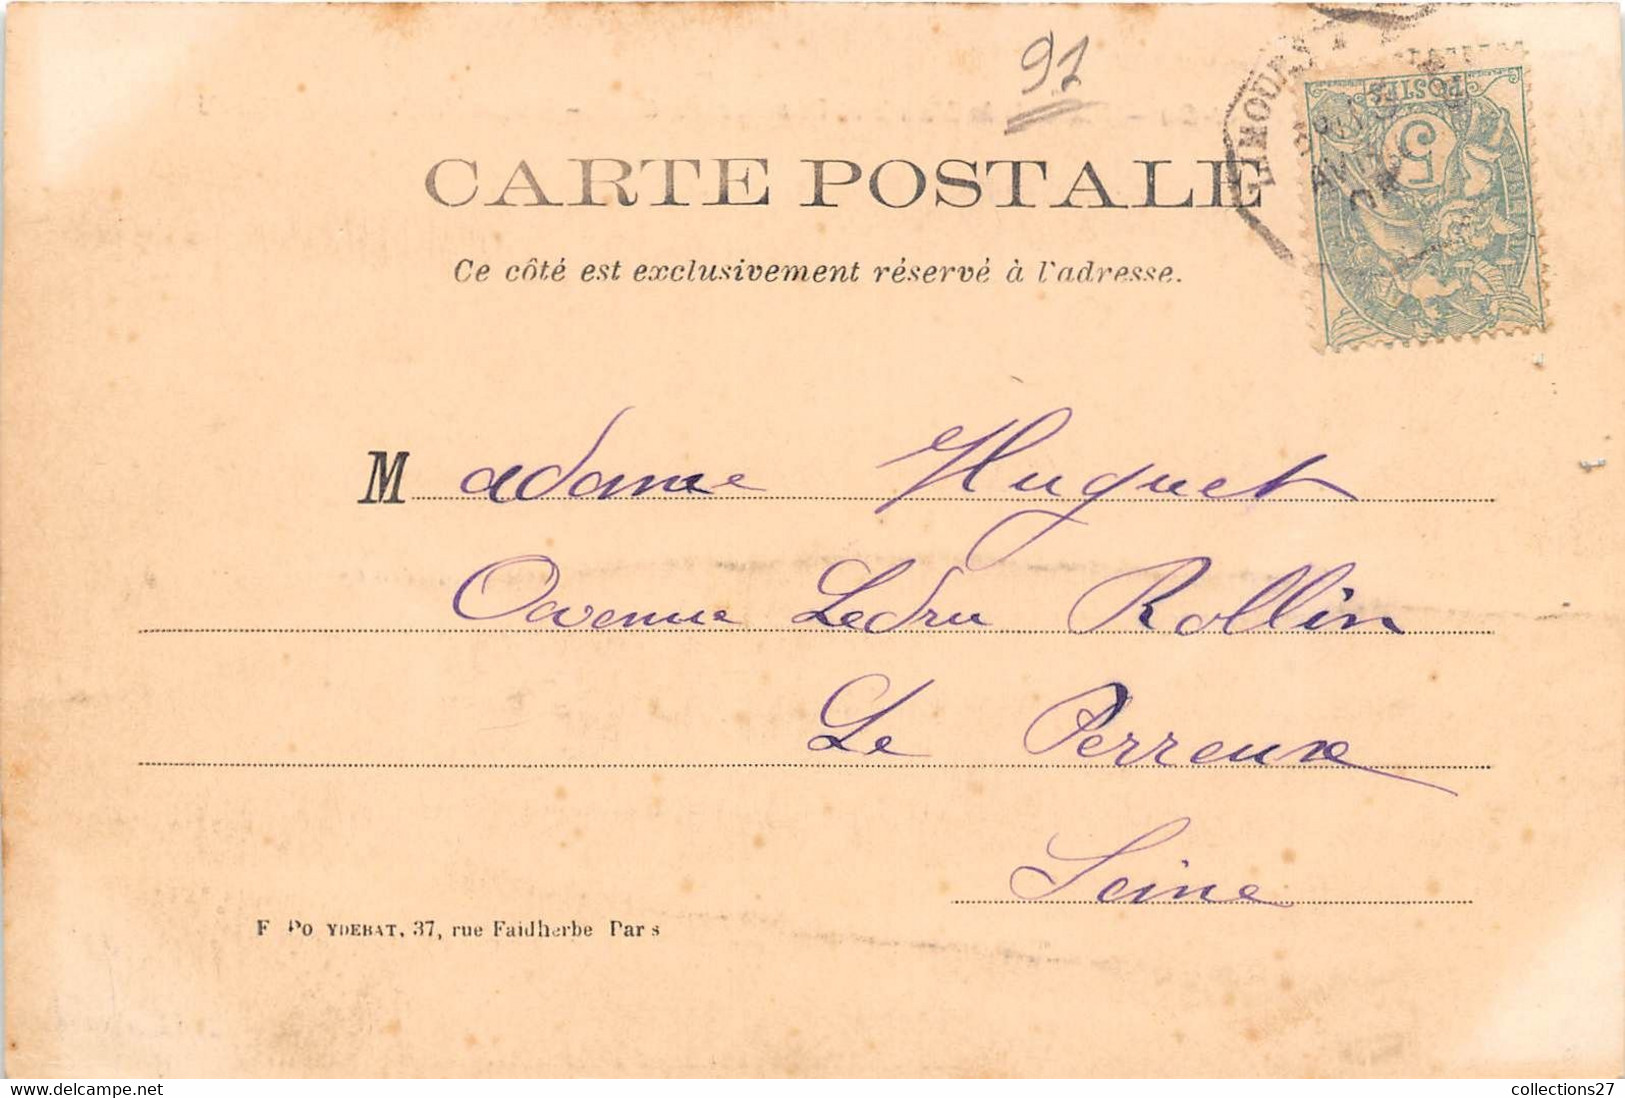 91
POSTES
5
CARTE POSTALE
Ce côté est exclusivement réservé à l'adresse.
Madame Huguet
Avenue Ledru Rollin
Le Perreux
Seine
F Po YDEBAT, 37, rue Faidherbe Par s
delcampe.net
collections27